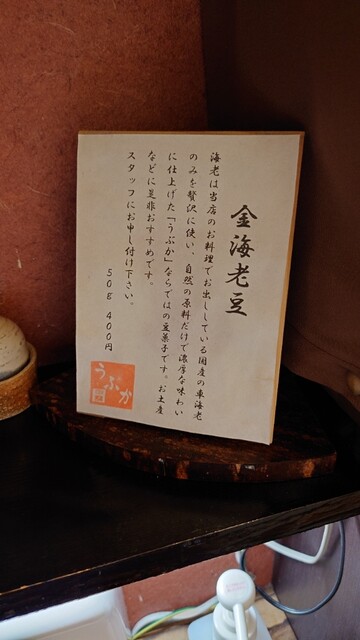 金海老豆
海老は当店のお料理でお出ししている国産の車海老
のみを贅沢に使い、自然の原料だけで濃厚な味わい
に仕上げた「うぶか」ならではの豆菓子です。お土産
などに是非おすすめです。
スタッフにお申し付け下さい。
50g 400円
うぶか